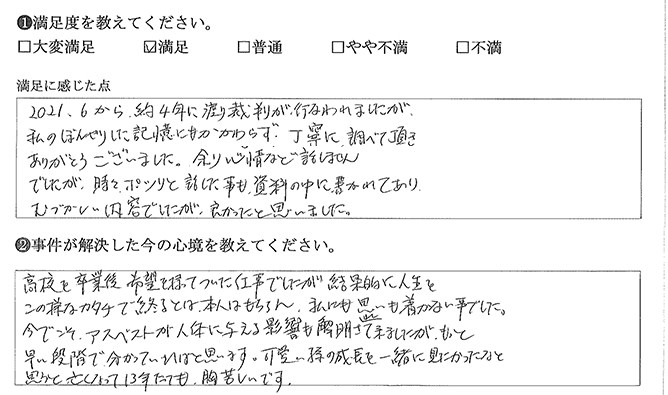 ❶満足度を教えてください。
□大変満足 ☑満足 □普通 □やや不満 □不満
満足に感じた点
2021、6から、約4年に渡り裁判が行なわれましたが、
私のぼんやりした記憶にもかかわらず、丁寧に調べて頂き
ありがとうございました。余り心情など話しません
でしたが、時々、ポツリと話した事も、資料の中に書かれてあり
むづかしい内容でしたが、良かったと思いました。
❷事件が解決した今の心境を教えてください。
高校を卒業後 希望を持ってついた仕事でしたが 結果的に人生を
この様なカタチで終るとは、本人はもちろん、私にも思いも着かない事でした。
今でこそ、アスベストが人体に与える影響も解明されて来ましたが、もっと
早い段階で分かっていればと思います。可愛い孫の成長を一緒に見たかったなと
思うと亡くなって13年たっても、胸苦しいです。